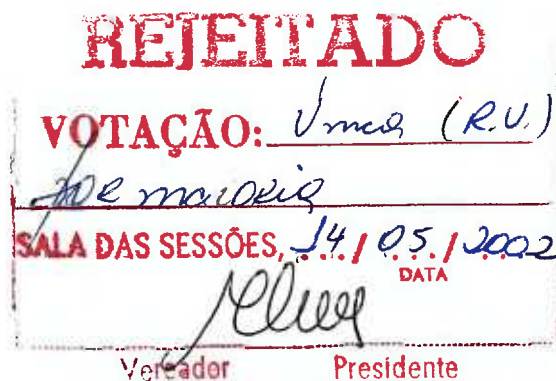 REJEITADO
VOTAÇÃO: Única (R.U.)
por maioria
SALA DAS SESSÕES, 14/05/2002
DATA
Vereador Presidente